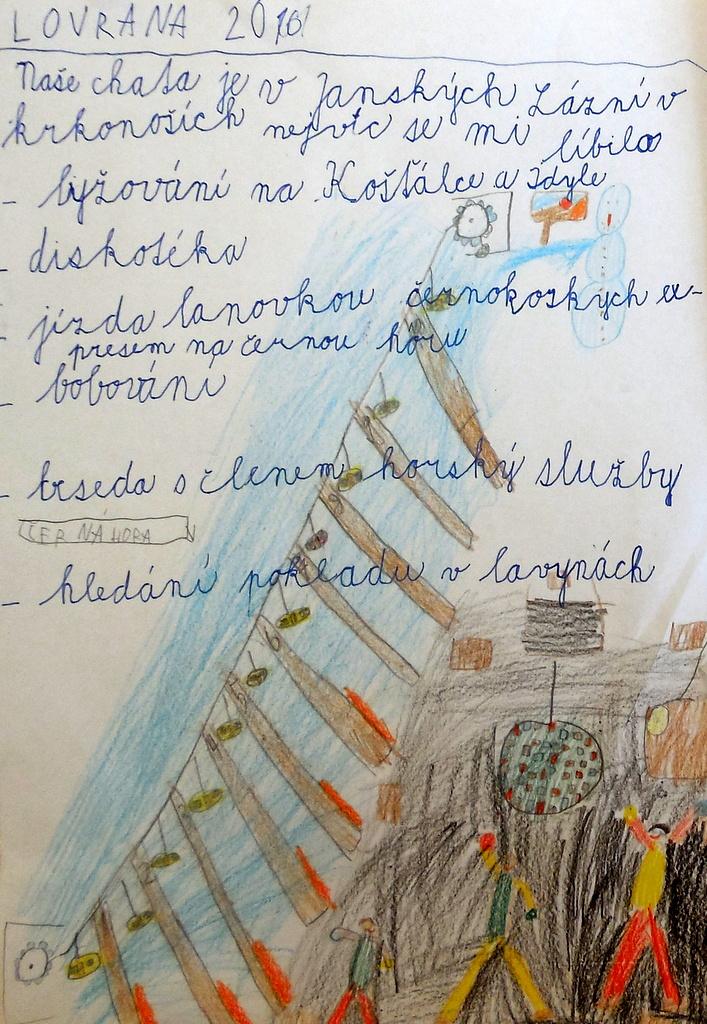 LOVRANA 2018
Naše chata je v Janských Lázní v
krkonošících nejvíc se mi líbilo
- lyžování na Košťálce a Idyle
- diskotéka
- jízda lanovkou černohorských ex-
presem na černou horu
- bobování
- beseda s členem horský služby
ČERNÁ HORA
- hledání pokladu v lavynách